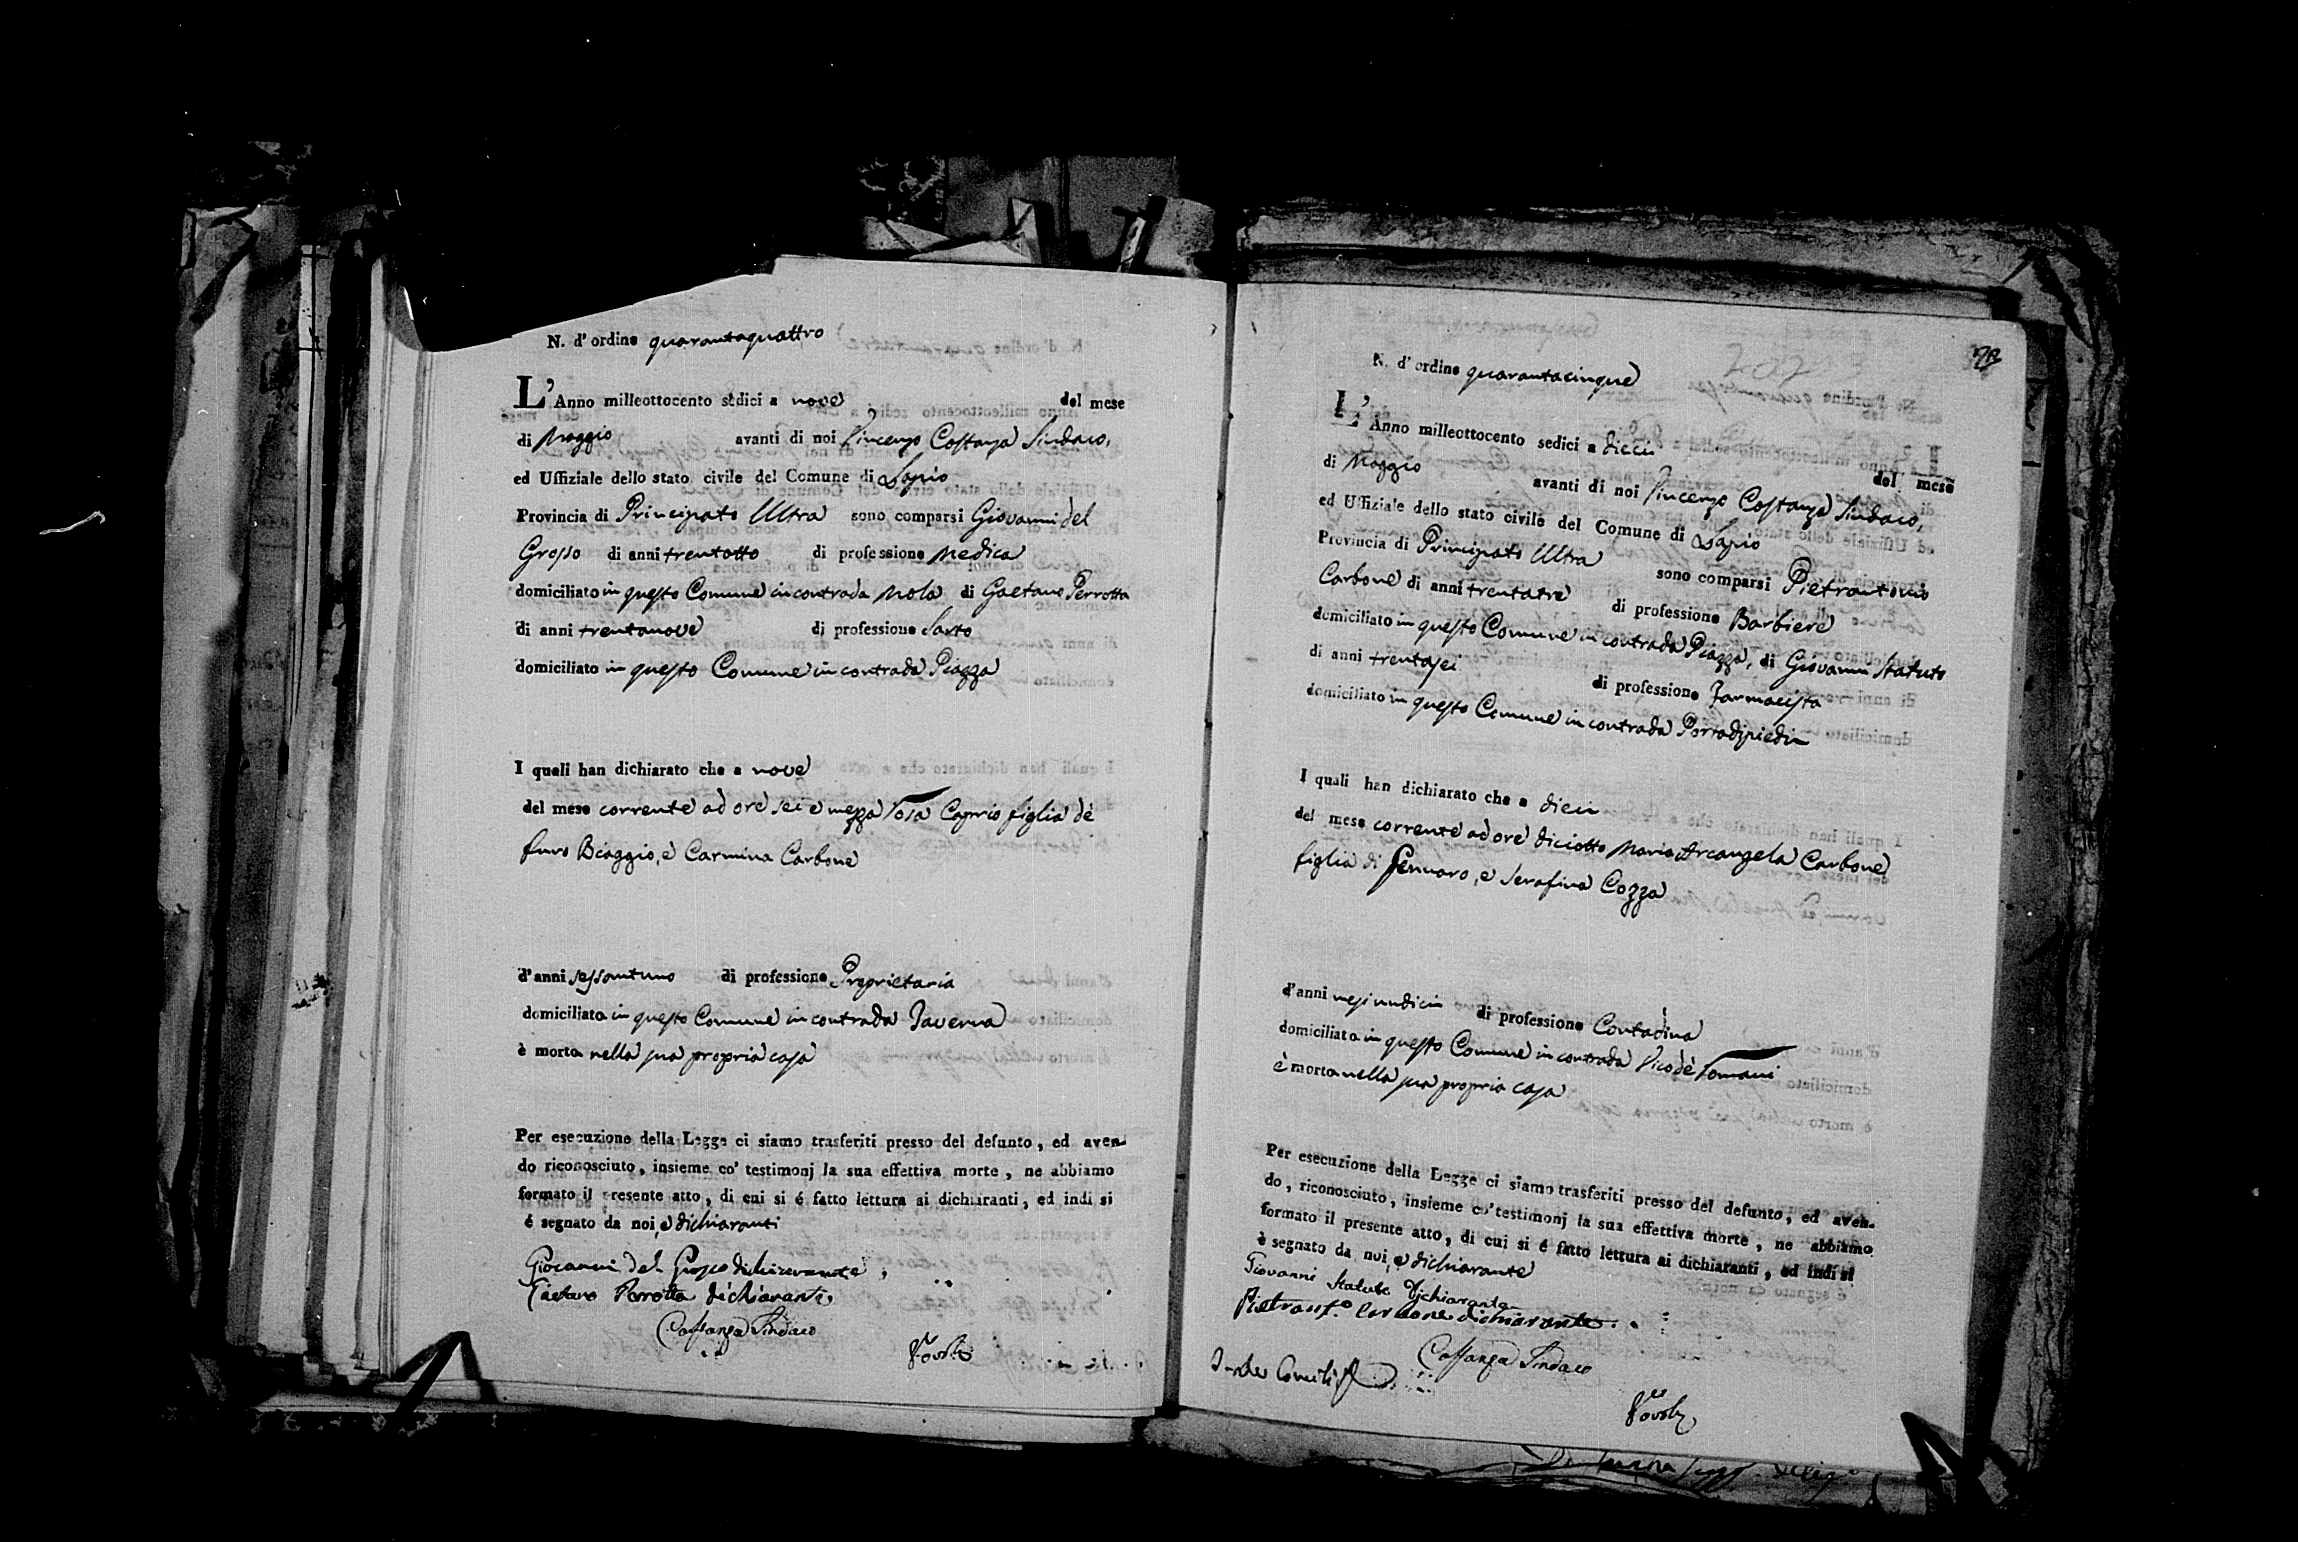 N. d'ordine quarantaquattro
L'Anno milleottocento sedici a nove del mese
di Maggio avanti di noi Vincenzo Costanza Sindaco,
ed Uffiziale dello stato civile del Comune di Lapio
Provincia di Principato Ultra sono comparsi Giovanni del
Grosso di anni trentotto di professione Medica
domiciliato in questo Comune in contrada Mola di Gaetano Perrotta
di anni trentanove di professione Sarto
domiciliato in questo Comune in contrada Piazza
I quali han dichiarato che a nove
del mese corrente ad ore sei e mezza Rosa Caprio figlia dè
furo Biaggio, e Carmina Carbone
d'anni sessantuno di professione Proprietaria
domiciliata in questo Comune in contrada Taverna
è morta nella sua propria casa
Per esecuzione della Legge ci siamo trasferiti presso del defunto, ed aven-
do riconosciuto, insieme co' testimonj la sua effettiva morte, ne abbiamo
formato il presente atto, di cui si é fatto lettura ai dichiaranti, ed indi si
é segnato da noi, e dichiaranti
Giovanni del Grosso dichiarante
Gaetano Perrotta dichiarante
Costanza Sindaco
N. d'ordine quarantacinque
L'Anno milleottocento sedici a dieci del mese
di Maggio avanti di noi Vincenzo Costanza Sindaco,
ed Uffiziale dello stato civile del Comune di Lapio
Provincia di Principato Ultra sono comparsi Pietrantonio
Carbone di anni trentatre di professione Barbiere
domiciliato in questo Comune in contrada Piazza, di Giovanni Statuto
di anni trentasei di professione Farmacista
domiciliato in questo Comune in contrada Portadipiedi
I quali han dichiarato che a dieci
del mese corrente ad ore diciotto Maria Arcangela Carbone
figlia di Gennaro, e Serafina Cozza
d'anni mesi undici di professione Contadina
domiciliata in questo Comune in contrada Vico dè Romani
è morta nella sua propria casa
Per esecuzione della Legge ci siamo trasferiti presso del defunto, ed aven-
do, riconosciuto, insieme co' testimonj la sua effettiva morte, ne abbiamo
formato il presente atto, di cui si é fatto lettura ai dichiaranti, ed indi si
è segnato da noi, e dichiarante
Giovanni Statuto Dichiarante
Pietrant.º Carbone dichiarante
Costanza Sindaco